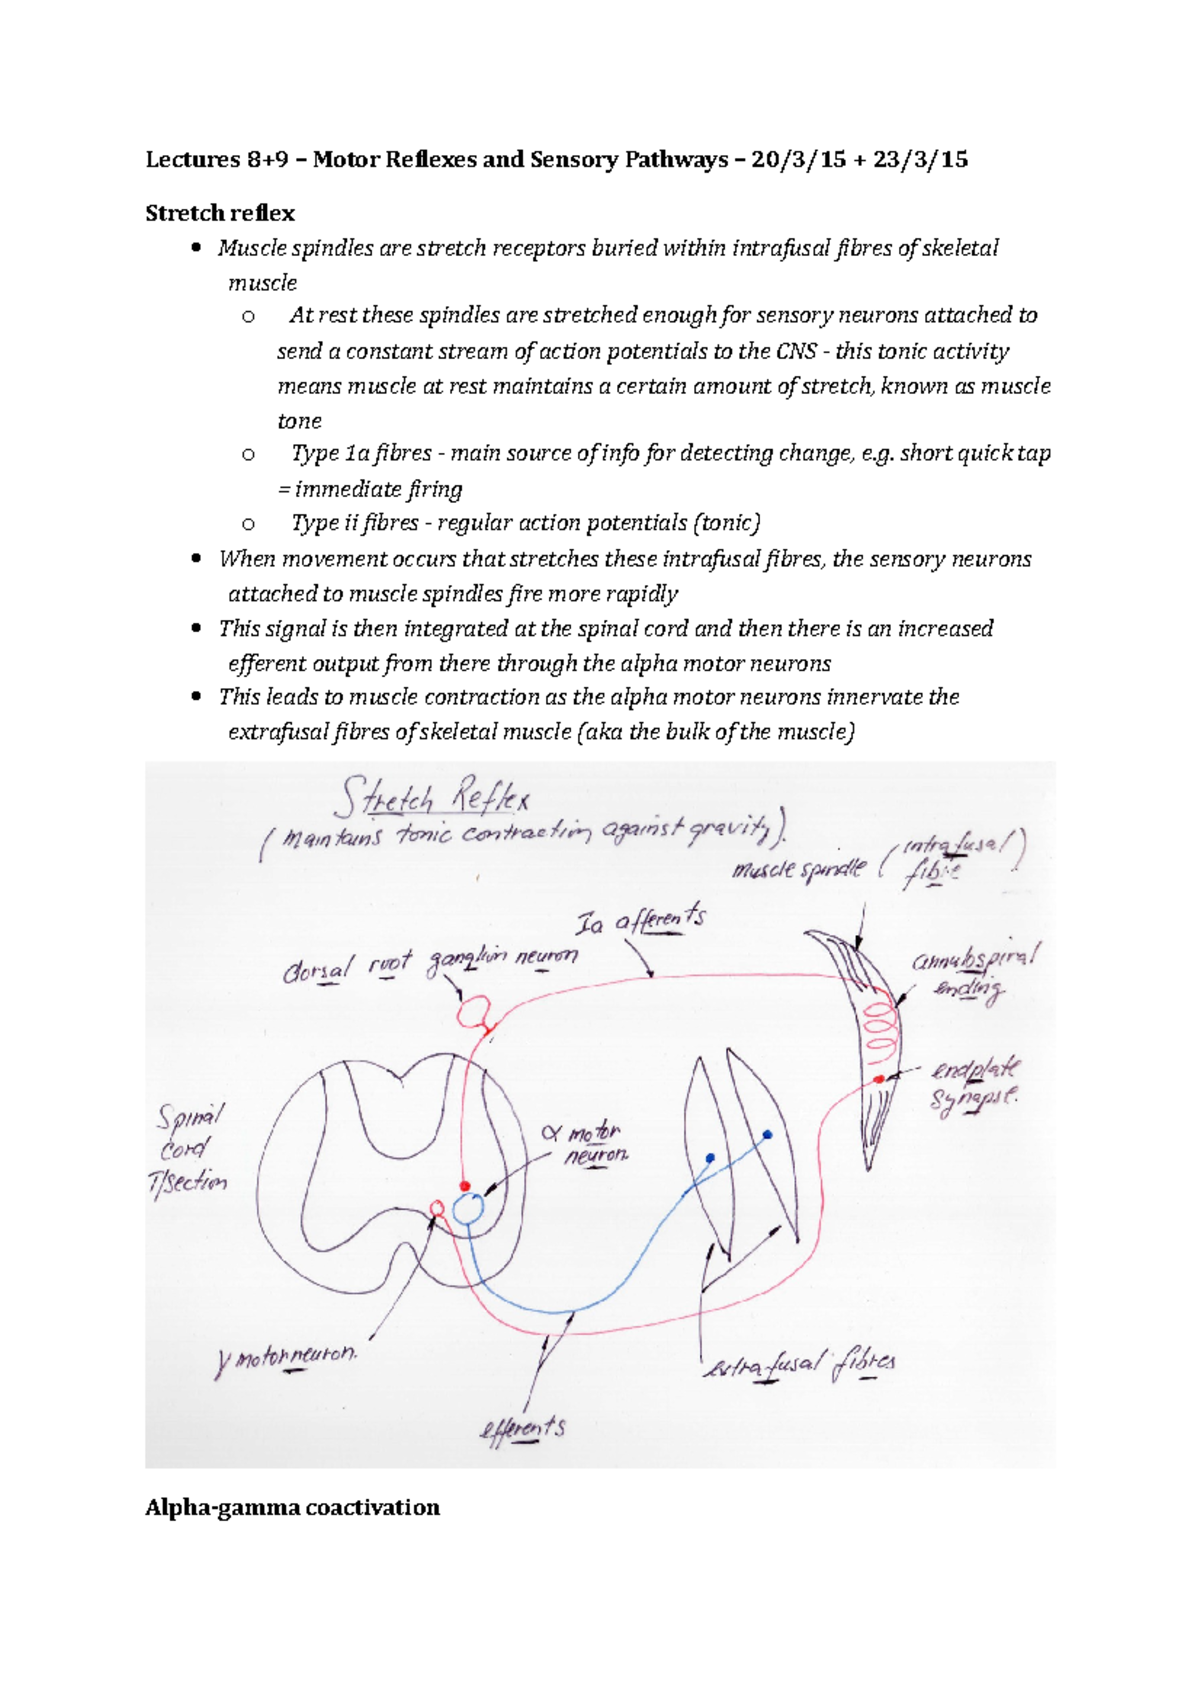 Lectures 8+9 – Motor Reflexes and Sensory Pathways – 20/3/15 + 23/3/15
Stretch reflex
• Muscle spindles are stretch receptors buried within intrafusal fibres of skeletal
muscle
o At rest these spindles are stretched enough for sensory neurons attached to
send a constant stream of action potentials to the CNS - this tonic activity
means muscle at rest maintains a certain amount of stretch, known as muscle
tone
o Type 1a fibres - main source of info for detecting change, e.g. short quick tap
= immediate firing
o Type ii fibres - regular action potentials (tonic)
• When movement occurs that stretches these intrafusal fibres, the sensory neurons
attached to muscle spindles fire more rapidly
• This signal is then integrated at the spinal cord and then there is an increased
efferent output from there through the alpha motor neurons
• This leads to muscle contraction as the alpha motor neurons innervate the
extrafusal fibres of skeletal muscle (aka the bulk of the muscle)
Stretch Reflex
(maintains tonic contraction against gravity).
muscle spindle (intrafusal
fibre)
Ia afferents
dorsal root ganglion neuron
annulospiral
ending
endplate
synapse.
Spinal
cord
T/section
α motor
neuron.
γ motorneuron.
extrafusal fibres
efferents
Alpha-gamma coactivation